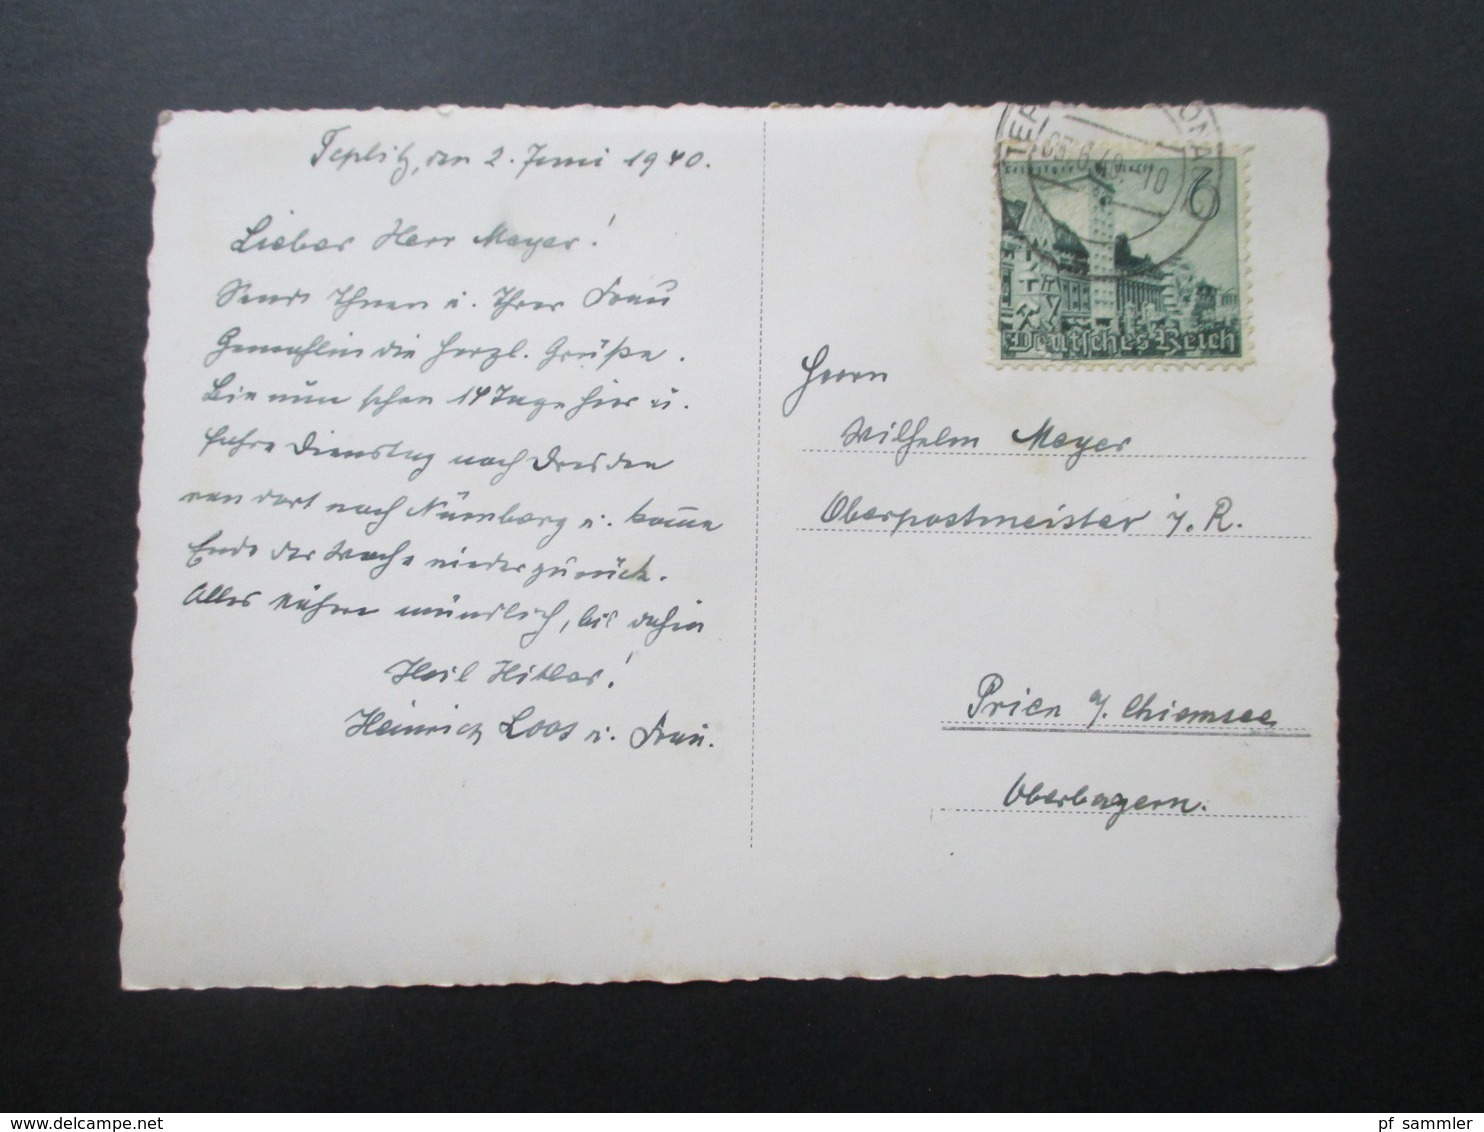 Teplitz, den 2. Juni 1940.
Lieber Herr Meyer!
Sende Ihnen u. Ihrer Frau
Gemahlin die herzl. Grüße.
Bin nun schon 14 Tage hier u.
fahre Dienstag nach Dresden
von dort nach Nürnberg u. komme
Ende der Woche wieder zurück.
Alles nähere mündlich, bis dahin
Heil Hitler!
Heinrich Loos u. Frau.
6
Deutsches Reich
Herrn
Wilhelm Meyer
Oberpostmeister i. R.
Prien a/. Chiemsee
Oberbayern.
pf_sammler
delcampe.net